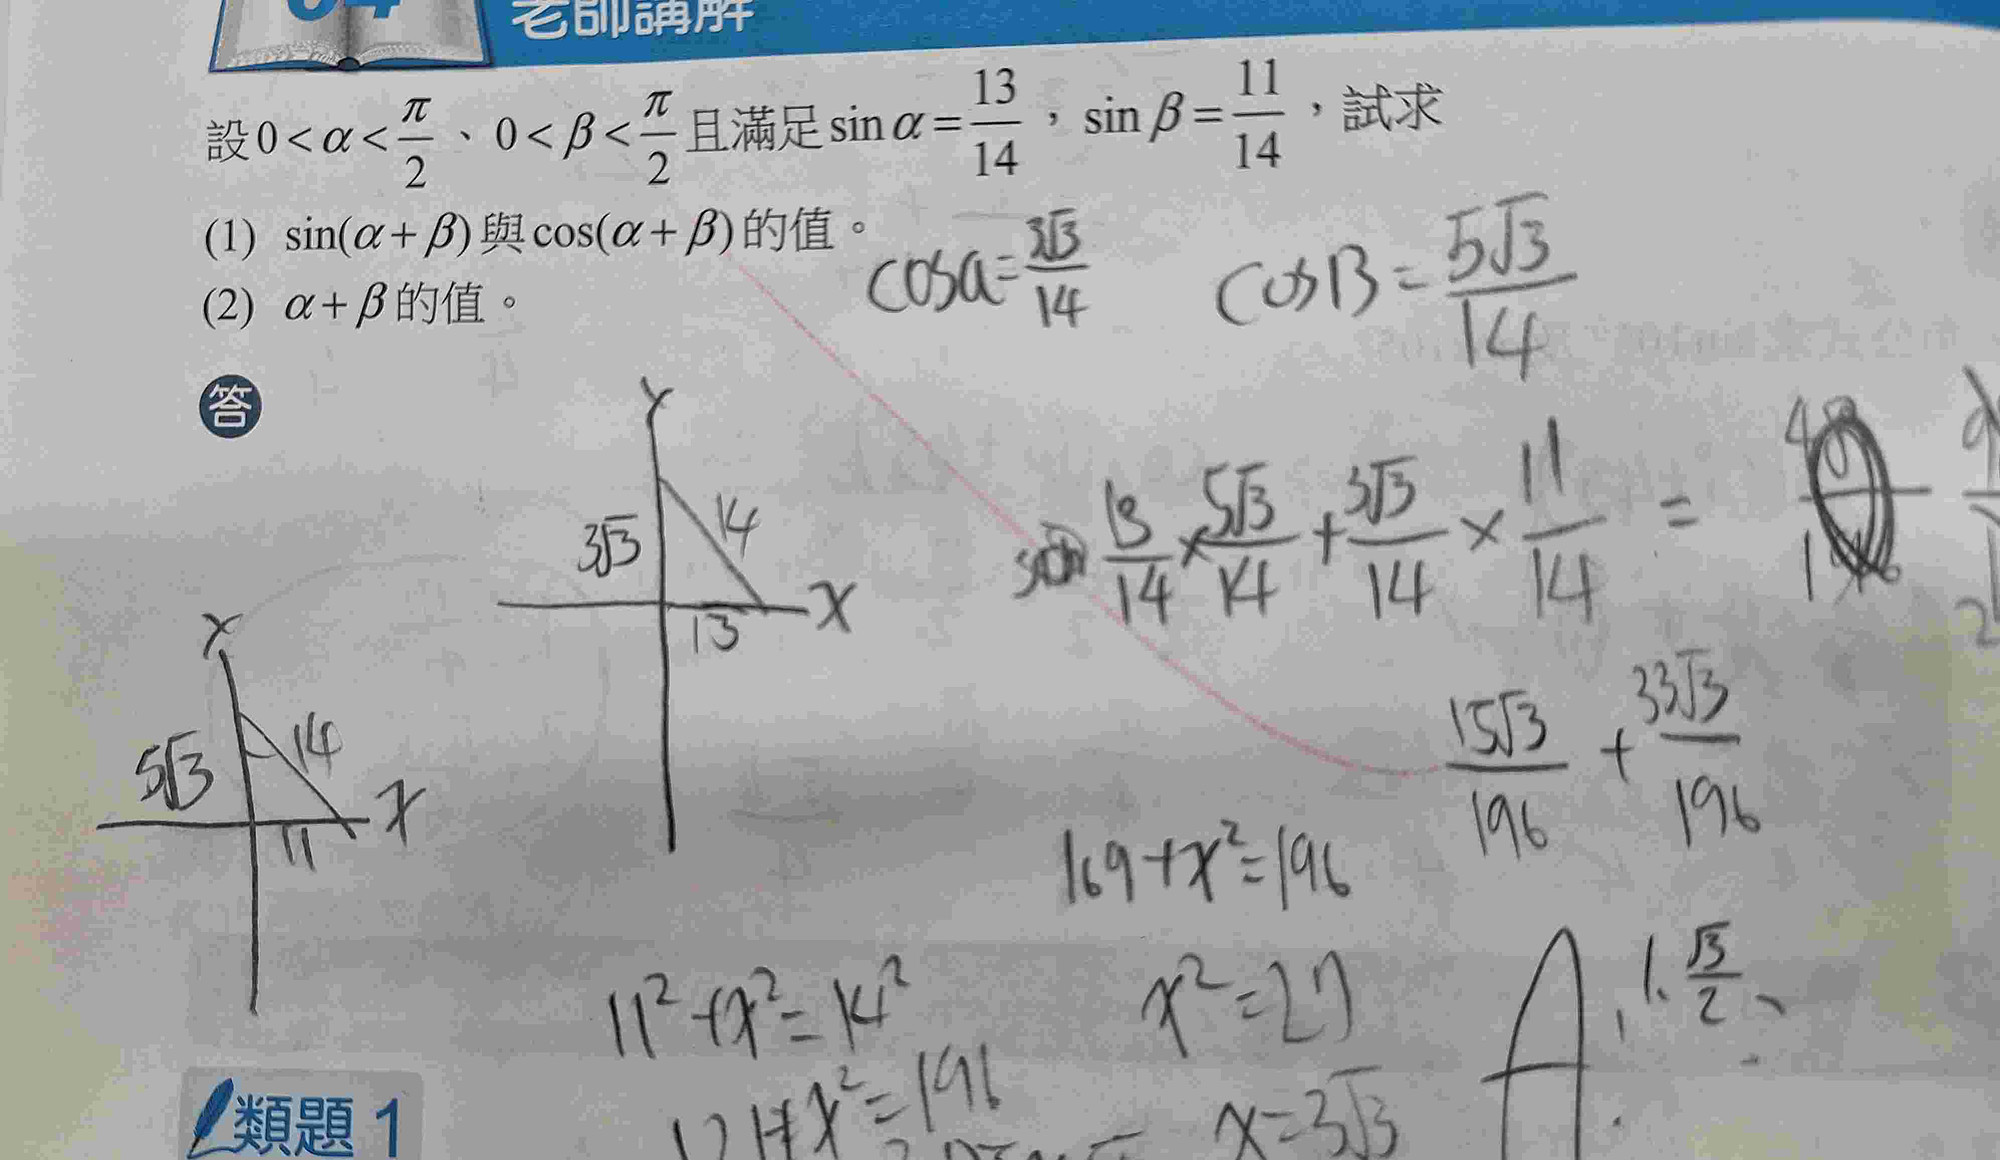 老師講解
設0<α<π/2、0<β<π/2且滿足sinα=13/14，sinβ=11/14，試求
(1) sin(α+β)與cos(α+β)的值。
(2) α+β的值。
cosα=3√3/14 cosβ=5√3/14
答
Y
3√3 14
13 X
13/14×5√3/14+3√3/14×11/14=
Y
5√3 14
11 X
15√3/196+33√3/196
169+x²=196
11²+x²=14²
x²=27
A: 1. √3/2、
121+x²=196
x=3√3
類題1